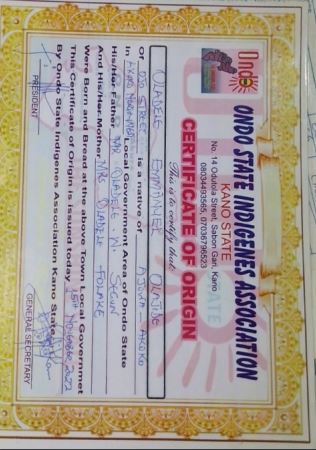 Ondo
ONDO STATE INDIGENES ASSOCIATION
KANO STATE
No. 14 Odutola Street, Sabon Gari, Kano
08034493565, 07036796523
CERTIFICATE OF ORIGIN
This is to certify that:
OLADELE EMMANUEL OLAJIDE
Of OJO STREET is a native of AJOWA - AKOKO
In AKOKO Local Government Area of Ondo State
His/Her Father MR OLADELE SEGUN
And His/Her Mother MRS OLADELE - FOLAKE
Were Born and Bread at the above Town Local Governmet
This Certificate of Origin is issued today 15th 2022
By Ondo State Indigenes Association Kano State
PRESIDENT
GENERAL SECRETARY